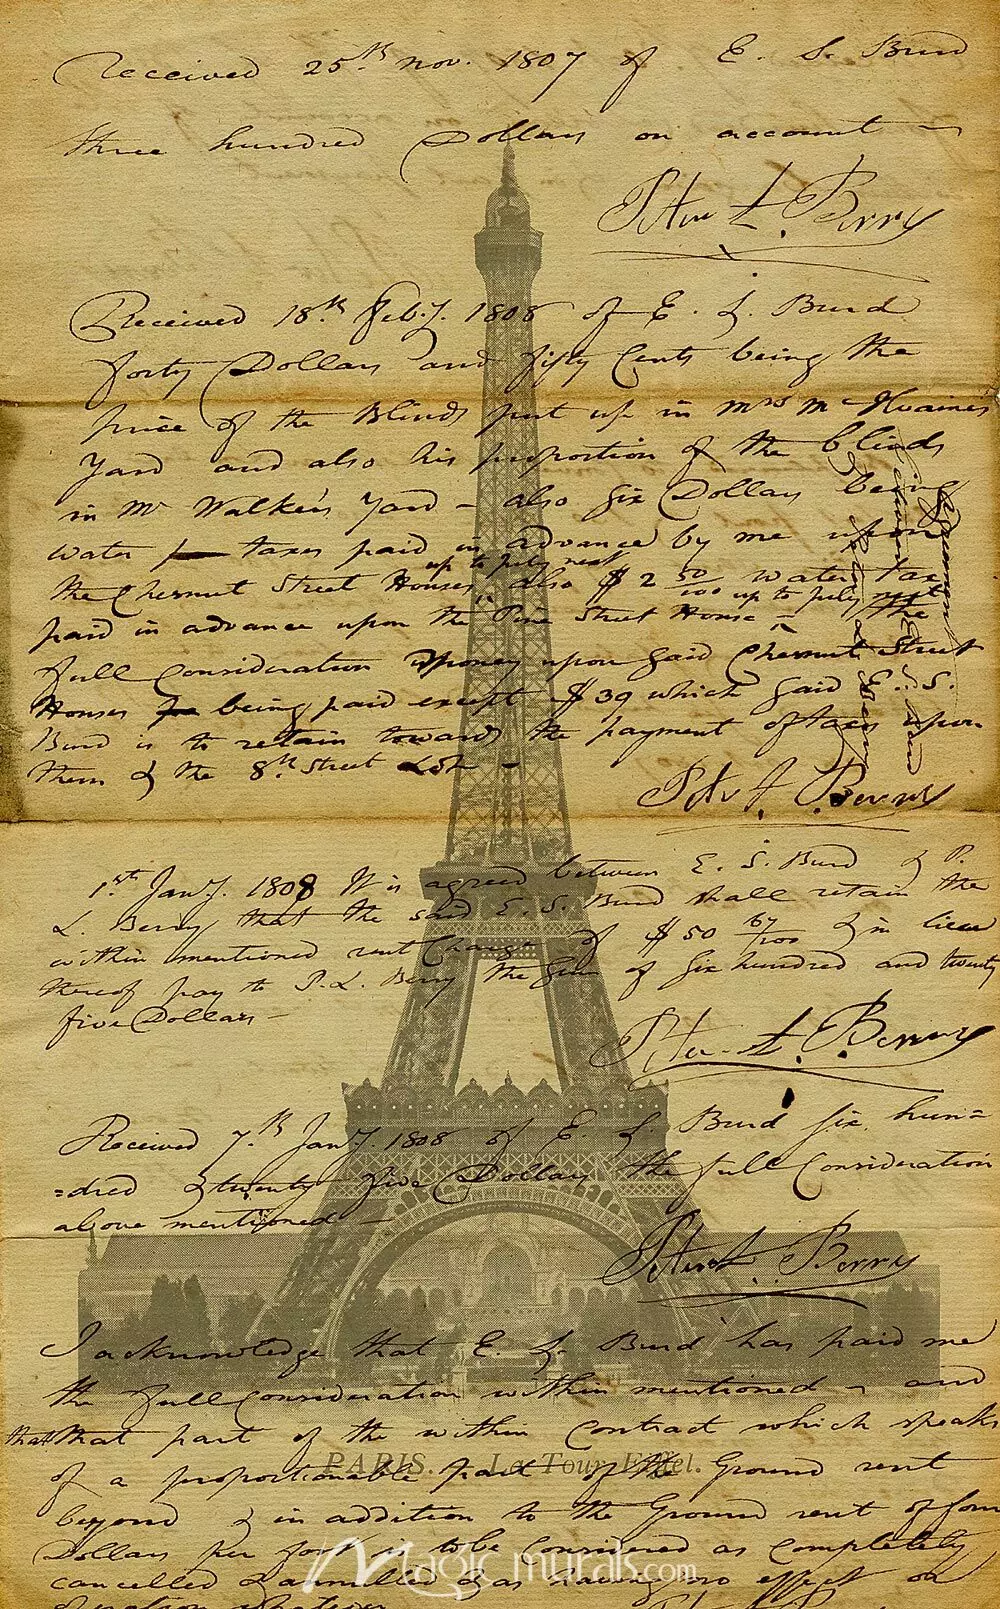 Received 25th Nov. 1807 of E. S. Burd
three hundred Dollars on account —
Peter L. Berry
Received 18th Feby. 1808 of E. S. Burd
forty Dollars and fifty Cents being the
price of the Blinds put up in Mrs
Yard and also his proportion of the blinds
in Mr Walker's Yard — also six Dollars being
water taxes paid in advance by me upon
up to July next
the Chesnut Street Houses, also $2 50/100 water tax
up to July next
paid in advance upon the Pine Street House — the
full Consideration Money upon said Chesnut Street
Houses being paid except $39 which said E. S.
Burd is to retain towards the payment of taxes upon
them & the 8th Street Lot —
Peter L. Berry
1st Jany. 1808 It is agreed between E. S. Burd & P.
L. Berry that the said E. S. Burd shall retain the
within mentioned rent Charge of $50 67/100 & in lieu
thereof pay to P. L. Berry the Sum of Six hundred and twenty
five Dollars —
Peter L. Berry
Received 7th Jany. 1808 of E. S. Burd six hun=
=dred & twenty five Dollars the full Consideration
above mentioned —
Peter L. Berry
I acknowledge that E. S. Burd has paid me
the full Consideration within mentioned — and
that that part of the within Contract which speaks
PARIS. — La Tour Eiffel.
of a proportionable part of the Ground rent
beyond & in addition to the Ground rent of four
Dollars per foot is to be Considered as completely
cancelled & annulled & as having no effect or
Magic murals.com
whatever